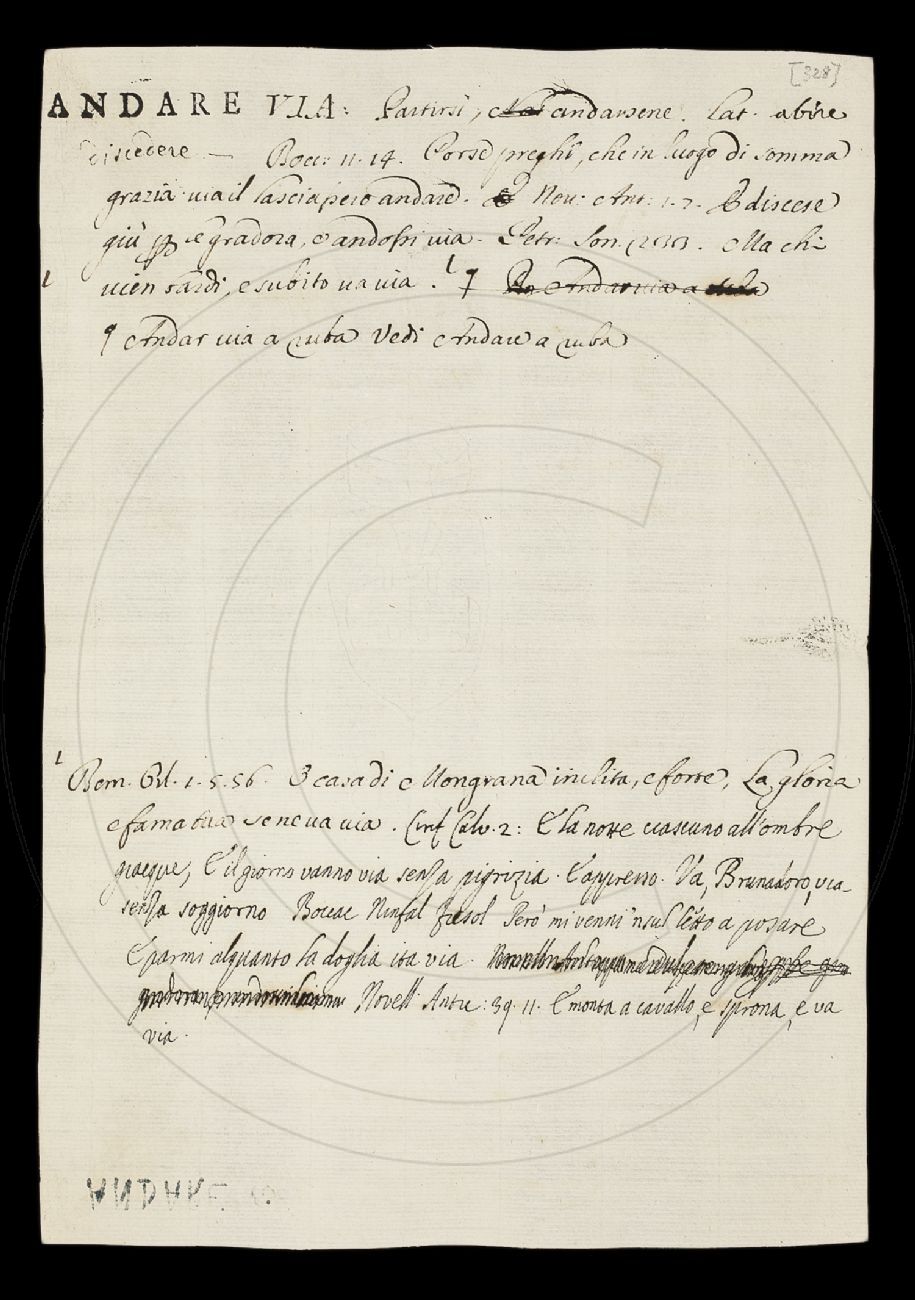 [328]
ANDARE VIA: Partirsi, andarsene. Lat. abire
discedere — Bocc: 11. 14. Porse preghi, che in luogo di somma
grazia via il lasciassero andare. Nov: Ant: 1. 7. E discese
giù p le gradora, e andossi via. Petr: Son. Ma chi
vien tardi, e subito va via. ¶ Andar via a
¶ Andar via a ruba Vedi Andare a ruba
Bern. Orl. 1. 5. 56. O casa di Mongrana inclita, e forte, La gloria
e fama tua se ne va via. Cirif Calv. 2: E la notte ciascuno all'ombre
giacque, E il giorno vanno via senza pigrizia. E appresso. Va, Brunadoro, via
senza soggiorno Boccac Ninfal Fiesol Però mi venni 'n sul letto a posare
E parmi alquanto la doglia ita via.
Novell Antic: 39. 11. E monta a cavallo, e sprona, e va
via.
ANDARE